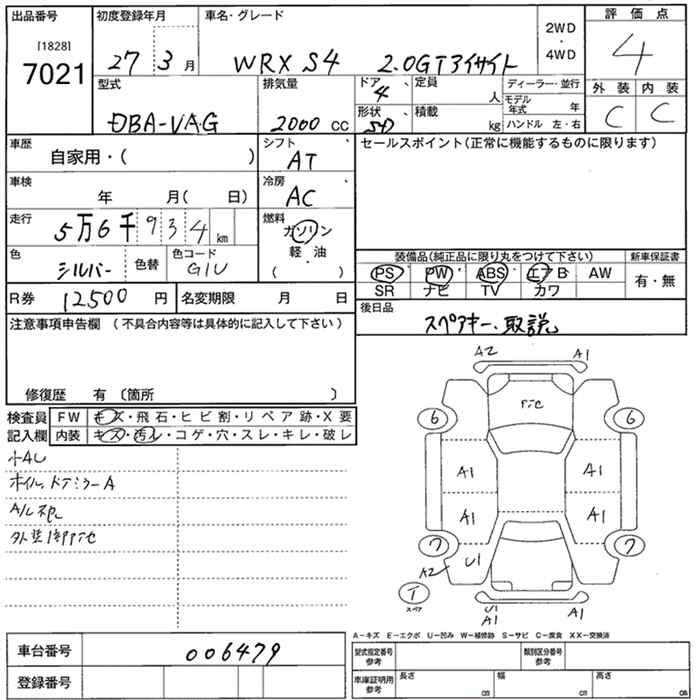 出品番号 初度登録年月 車名・グレード 2WD ・ 4WD 評価点
[1828]
7021 27 3月 WRX S4 2.0GTアイサイト 4
型式 排気量 ドア 4 定員 人 ディーラー・並行 外装 内装
DBA-VAG 2000 cc 形状 SD 積載 kg モデル年式 年 C C
ハンドル 左・右
車歴 自家用・( ) シフト AT セールスポイント(正常に機能するものに限ります)
車検 年 月( 日) 冷房 AC
走行 5万6千934km 燃料 ガソリン
軽・油
( )
色 シルバー 色替 色コード G1U
装備品(純正品に限り丸をつけて下さい) 新車保証書
PS PW ABS エアB AW 有・無
SR ナビ TV カワ
R券 12500 円 名変期限 月 日 後日品
スペアキー、取説
注意事項申告欄(不具合内容等は具体的に記入して下さい)
修復歴 有〔箇所 〕
検査員 FW キズ・飛石・ヒビ割・リペア跡・X要
記入欄 内装 キズ・汚レ・コゲ・穴・スレ・キレ・破レ
小AU
ホイル、ドアミラーA
A2 A1
6 6
A1 A1
A1 A1
7 7
A2 U1
T
スペア
U1
A1 A1
A-キズ E-エクボ U-凹み W-補修跡 S-サビ C-腐食 XX-交換済
車台番号 006479 型式指定番号 参考 類別区分番号 参考
登録番号 車庫証明用 参考 長さ cm 幅 cm 高さ cm